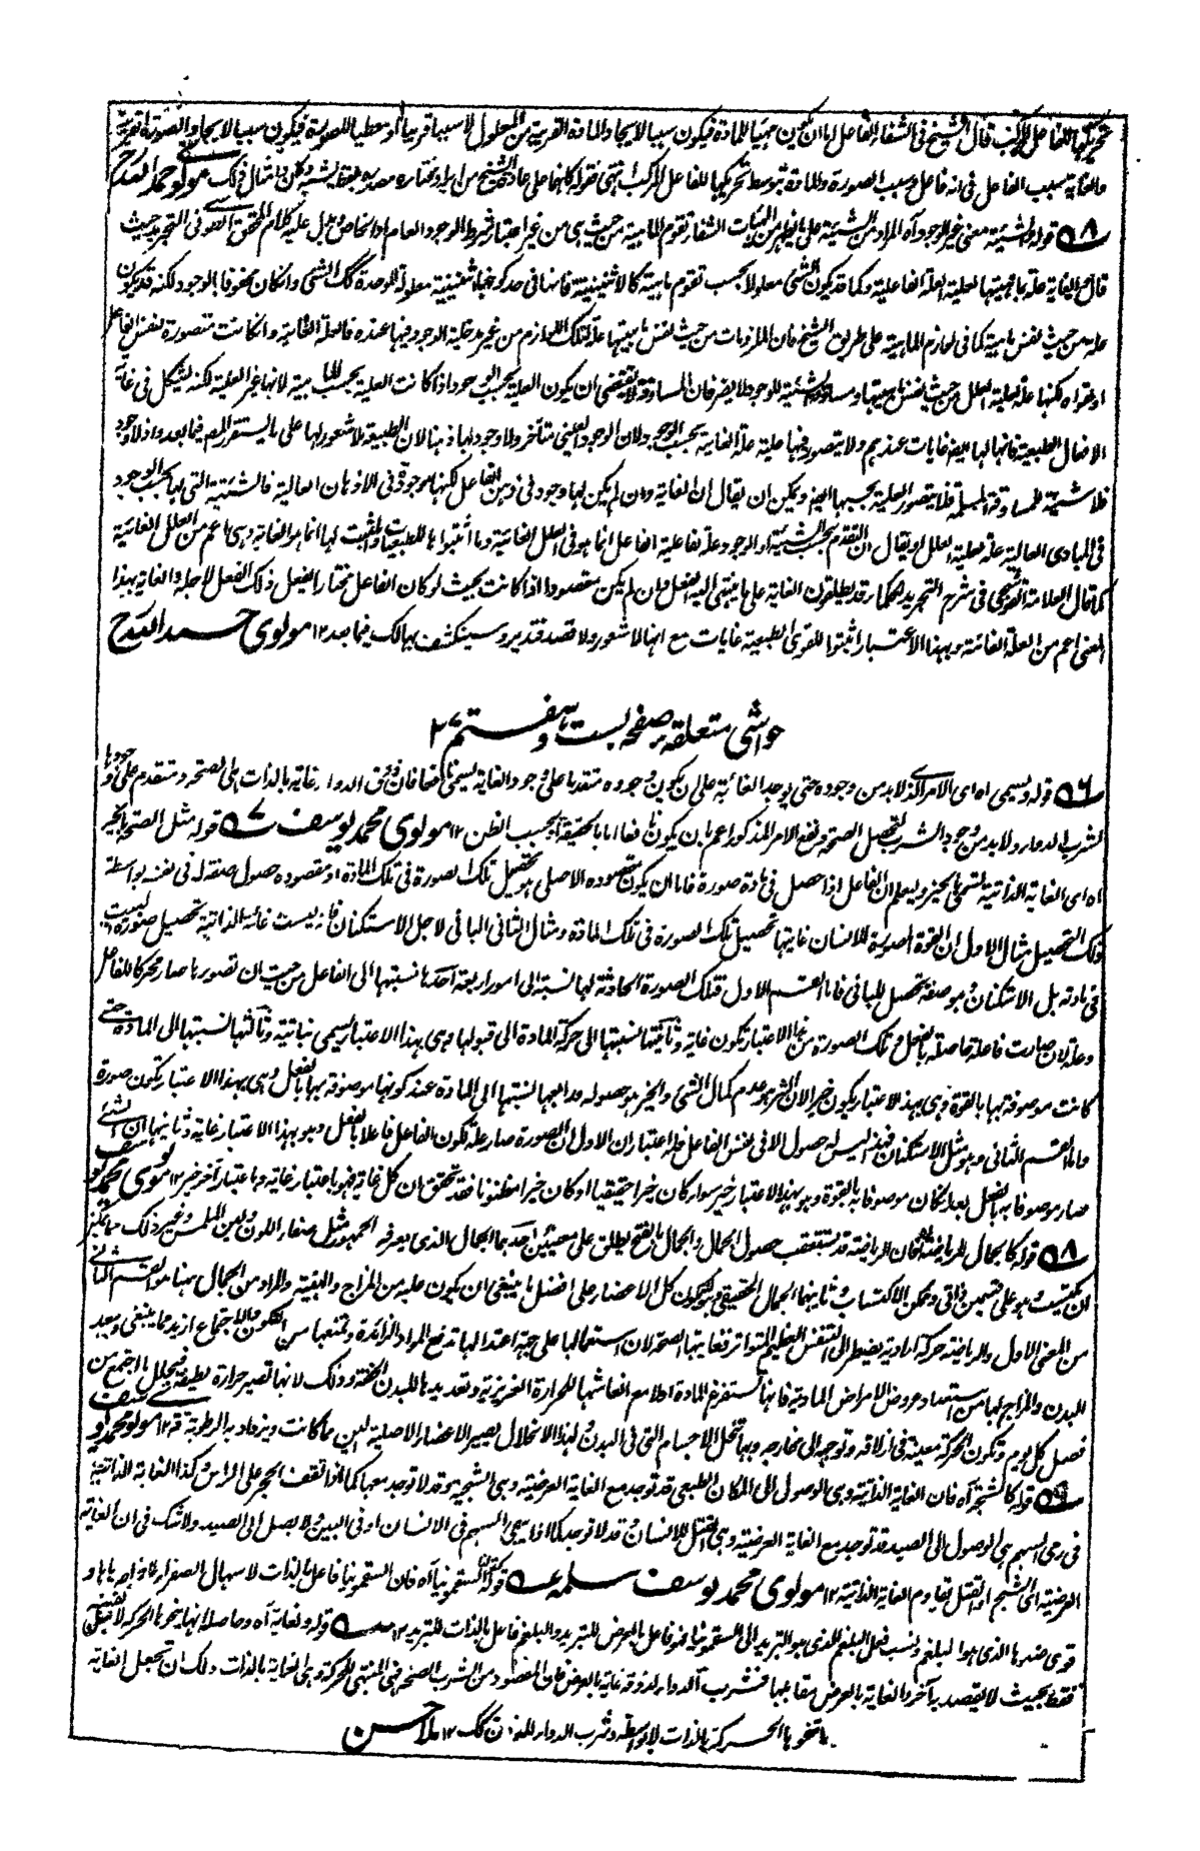 تحريكها للفاعل المركب قال الشيخ في الشفاء الفاعل اما ان يكون مهيئا للمادة فيكون سببا لايجاد المادة القريبة من المعلول لا سببا قريبا او معطيا للصورة فيكون سببا لايجاد الصورة القريبة
والغاية سبب الفاعل في انه فاعل وسبب الصورة والمادة بتوسط تحريكها للفاعل المركب انتهى فقوله كانها على عادة الشيخ من ايراد مختاره مصدرا بلفظ يشبه وكان وامثال ذلك مولوي حمد الله رح
٥٨ قوله الشيئية معنى غير الوجود آه المراد من الشيئية على ما يظهر من الهيات الشفاء تقوم الماهية من حيث هي من غير اعتبار شرط الوجود العام او الخاص يدل عليه كلام المحقق الطوسي في التجريد حيث
قال الغاية علة بماهيتها لعلية العلة الفاعلية وكما قد يكون الشيء معلولا بحسب تقوم ماهية كالاثنينية فانها في حد كونها اثنينية معلولة للوحدة كك الشيء وان كان محفوفا بالوجود لكنه قد يكون
علة من حيث نفس ماهية كما في لوازم الماهية على طريق الشيخ فان الملزومات من حيث نفس ماهيتها علة لتلك اللوازم من غير مدخلية الوجود فيها عنده فالعلة الغائية وان كانت متصورة لنفس الفاعل
او لقواه لكنها علة لعلية العلل من حيث نفس ماهيتها ومساوقة الشيئية للوجود لا يضر فان المساوقة لا تقتضي ان يكون العلية بحسب الوجود اذا كانت العلية بحسب الماهية لانها غير العلية لكنه يشكل في غاية
الافعال الطبيعية فانها لها ايضا غايات عندهم ولا يتصور فيها علية علة الغاية بحسب الوجود لان الوجود العيني متأخر ولا وجود لها ذهنا لان الطبيعة لا شعور لها على ما يستقر رأيهم فيما بعد واذ لا وجود
فلا شيئية للمساوقة المسلمة فلا يتصور العلية بحسبها ايضا ويمكن ان يقال ان الغاية وان لم يكن لها وجود في ذهن الفاعل لكنها موجودة في الاذهان العالية فالشيئية التي لها بحسب الوجود
في المبادي العالية علة لعلية العلل او يقال ان التقدم بحسب الشيئية او الوجود وعلة لفاعلية الفاعل انما هو في العلل الغائية وما اثبتوها للطبيعيات والمثبت لها انما هو الغاية وهي اعم من العلل الغائية
كما قال العلامة القوشجي في شرح التجريد الحكماء قد يطلقون الغاية على ما ينتهي اليه الفعل وان لم يكن مقصودا اذا كانت بحيث لو كان الفاعل مختارا لفعل ذلك الفعل لاجله والغاية بهذا
المعنى اعم من العلة الغائية وبهذا الاعتبار اثبتوا للقوى الطبيعية غايات مع انها لا شعور ولا قصد فتدبر وسينكشف بها لك فيما بعد ١٢ مولوي حمد الله رح
حواشي متعلقه بر صفحه بست و هفتم ٢٧
٥٦ قوله ويسمى اه اى الامر الذي لا بد من وجوده حتى يوجد الغائية على ان يكون وجوده متقدما على وجود الغاية يسمى نافعا فان دق الدواء غاية بالذات هي الصحة ومتقدم على وجودها
شرب الدواء ولا بد من وجود الشرب لتحصل الصحة ونفع الامر المذكور اعم بان يكون نافعا اما بالحقيقة او بحسب الظن ١٢ مولوي محمد يوسف ٥٧ قوله مثل الصحة بالخير
اه اى الغاية الذاتية تسمى بالخير وليعلم ان الفاعل اذا حصل في مادة صورة فاما ان يكون مقصوده الاصلي هو تحصيل تلك الصورة في تلك المادة او مقصوده حصول صفة له في نفسه بواسطة
ذلك التحصيل مثال الاول ان القوة المصورة للانسان غايتها تحصيل تلك الصورة في تلك المادة ومثال الثاني الباني لاجل الاستكنان فانه ليست غايته الذاتية تحصيل صورة البيت
في مادته بل الاستكنان وهو صفة تحصل للباني فاما القسم الاول فتلك الصورة الحادثة لها نسبة الى امور اربعة احدها نسبتها الى الفاعل من حيث ان تصورها صار محركا للفاعل
وعلة لان صارت فاعلة حاصلة بالفعل وتلك الصورة من هذا الاعتبار تكون غاية وثانيتها نسبتها الى حركة المادة الى قبولها وهي بهذا الاعتبار يسمى نهاية وثالثها نسبتها الى المادة حتى
كانت موصوفة بها بالقوة وهي بهذا الاعتبار يكون خيرا لان الشر هو عدم كمال الشيء والخير هو حصوله ورابعها نسبتها الى المادة عند كونها موصوفة بها بالفعل وهي بهذا الاعتبار تكون صورة
واما القسم الثاني وهو مثل الاستكنان فهذا ليس له حصول الا في نفس الفاعل فله اعتباران الاول ان الصورة صار علة لكون الفاعل فاعلا بالفعل وهو بهذا الاعتبار غاية وثانيها ان الشيء
صار موصوفا به بالفعل بعد ان كان موصوفا به بالقوة وهو بهذا الاعتبار خير سواء كان خيرا حقيقيا او كان خيرا مظنونا فقد تحقق ان كل غاية فهو باعتبار غاية وباعتبار آخر خير ١٢ مولوي محمد يوسف
٥٨ قوله كالجمال للرياضة آه فان الرياضة قد تستعقب حصول الجمال والجمال بالفتح يطلق على معنيين احدهما الجمال الذي يعرفه الجمهور مثل صفاء اللون ولين الملمس وغير ذلك مما يمكن
ان يكتسب وهو على قسمين ذاتي وممكن الاكتساب وثانيها الجمال الحقيقي وهو كون كل الاعضاء على افضل ما ينبغي ان يكون عليه من المزاج والهيئة والمراد من الجمال ههنا هو القسم الثاني
من المعنى الاول والرياضة حركة ارادية يضطر الى التنفس العظيم المتواتر فغايتها الصحة لان استعمالها على جهة اعتدالها تدفع المواد الزائدة وتمنعها من التكون والاجتماع ازيد مما ينبغي وبعد
البدن والمزاج لها من استعداد عروض الامراض المادية فانها تستفرغ المادة اولا مع انعاشها للحرارة الغريزية وتعديدها للبدن الخفة وذلك لانها تصير حرارة لطيفة فيحلل ما اجتمع من
فضل كل يوم وتكون الحركة معينة في ازلاقه وتوجهه الى مخارجه وبها تتحلل الاجسام التي في البدن ولهذا الانحلال يصير الاعضاء الاصلية الين مما كانت ويزداد به الرطوبة ١٢ مولوي محمد يوسف
٥٩ قوله كالشجة آه فان الغاية الذاتية وهي الوصول الى المكان الطبيعي قد توجد مع الغاية العرضية وهي الشجة وقد لا توجد معها كما اذا تقف الحجر على الراس وكذا الغاية الذاتية
في رمي السهم هي الوصول الى الصيد قد توجد مع الغاية العرضية وهي القتل للانسان وقد لا توجد كما اذا يجي السهم في الانسان او في البين ولا يصل الى الصيد ولا شك في ان الغاية
العرضية اى الشج او القتل تقاوم الغاية الذاتية ١٢ مولوي محمد يوسف سلمه قوله كالسقمونيا آه فان السقمونيا فاعل بالذات لاسهال الصفراء واذا واجهها وها
قوى ضدها الذي هو البلغم ونسب فعل البلغم الذي هو التبريد الى السقمونيا فهو فاعل بالعرض للتبريد والبلغم فاعل بالذات للتبريد ١٢ قوله ولغاية آه وحاصله انها ينجر بها الحركة لا لنفسها
فقط بحيث لا يقصد بها آخر والغاية بالعرض مقابلها فشرب الدواء لذوقه غاية بالعرض فان المقصود من الشرب الصحة فهي المنتهى للحركة وهي الغاية بالذات ولك ان تجعل الغاية
ما تنحو بها الحركة بالذات بلا واسطة وشرب الدواء للذ: ن كك ١٢ ملا حسن